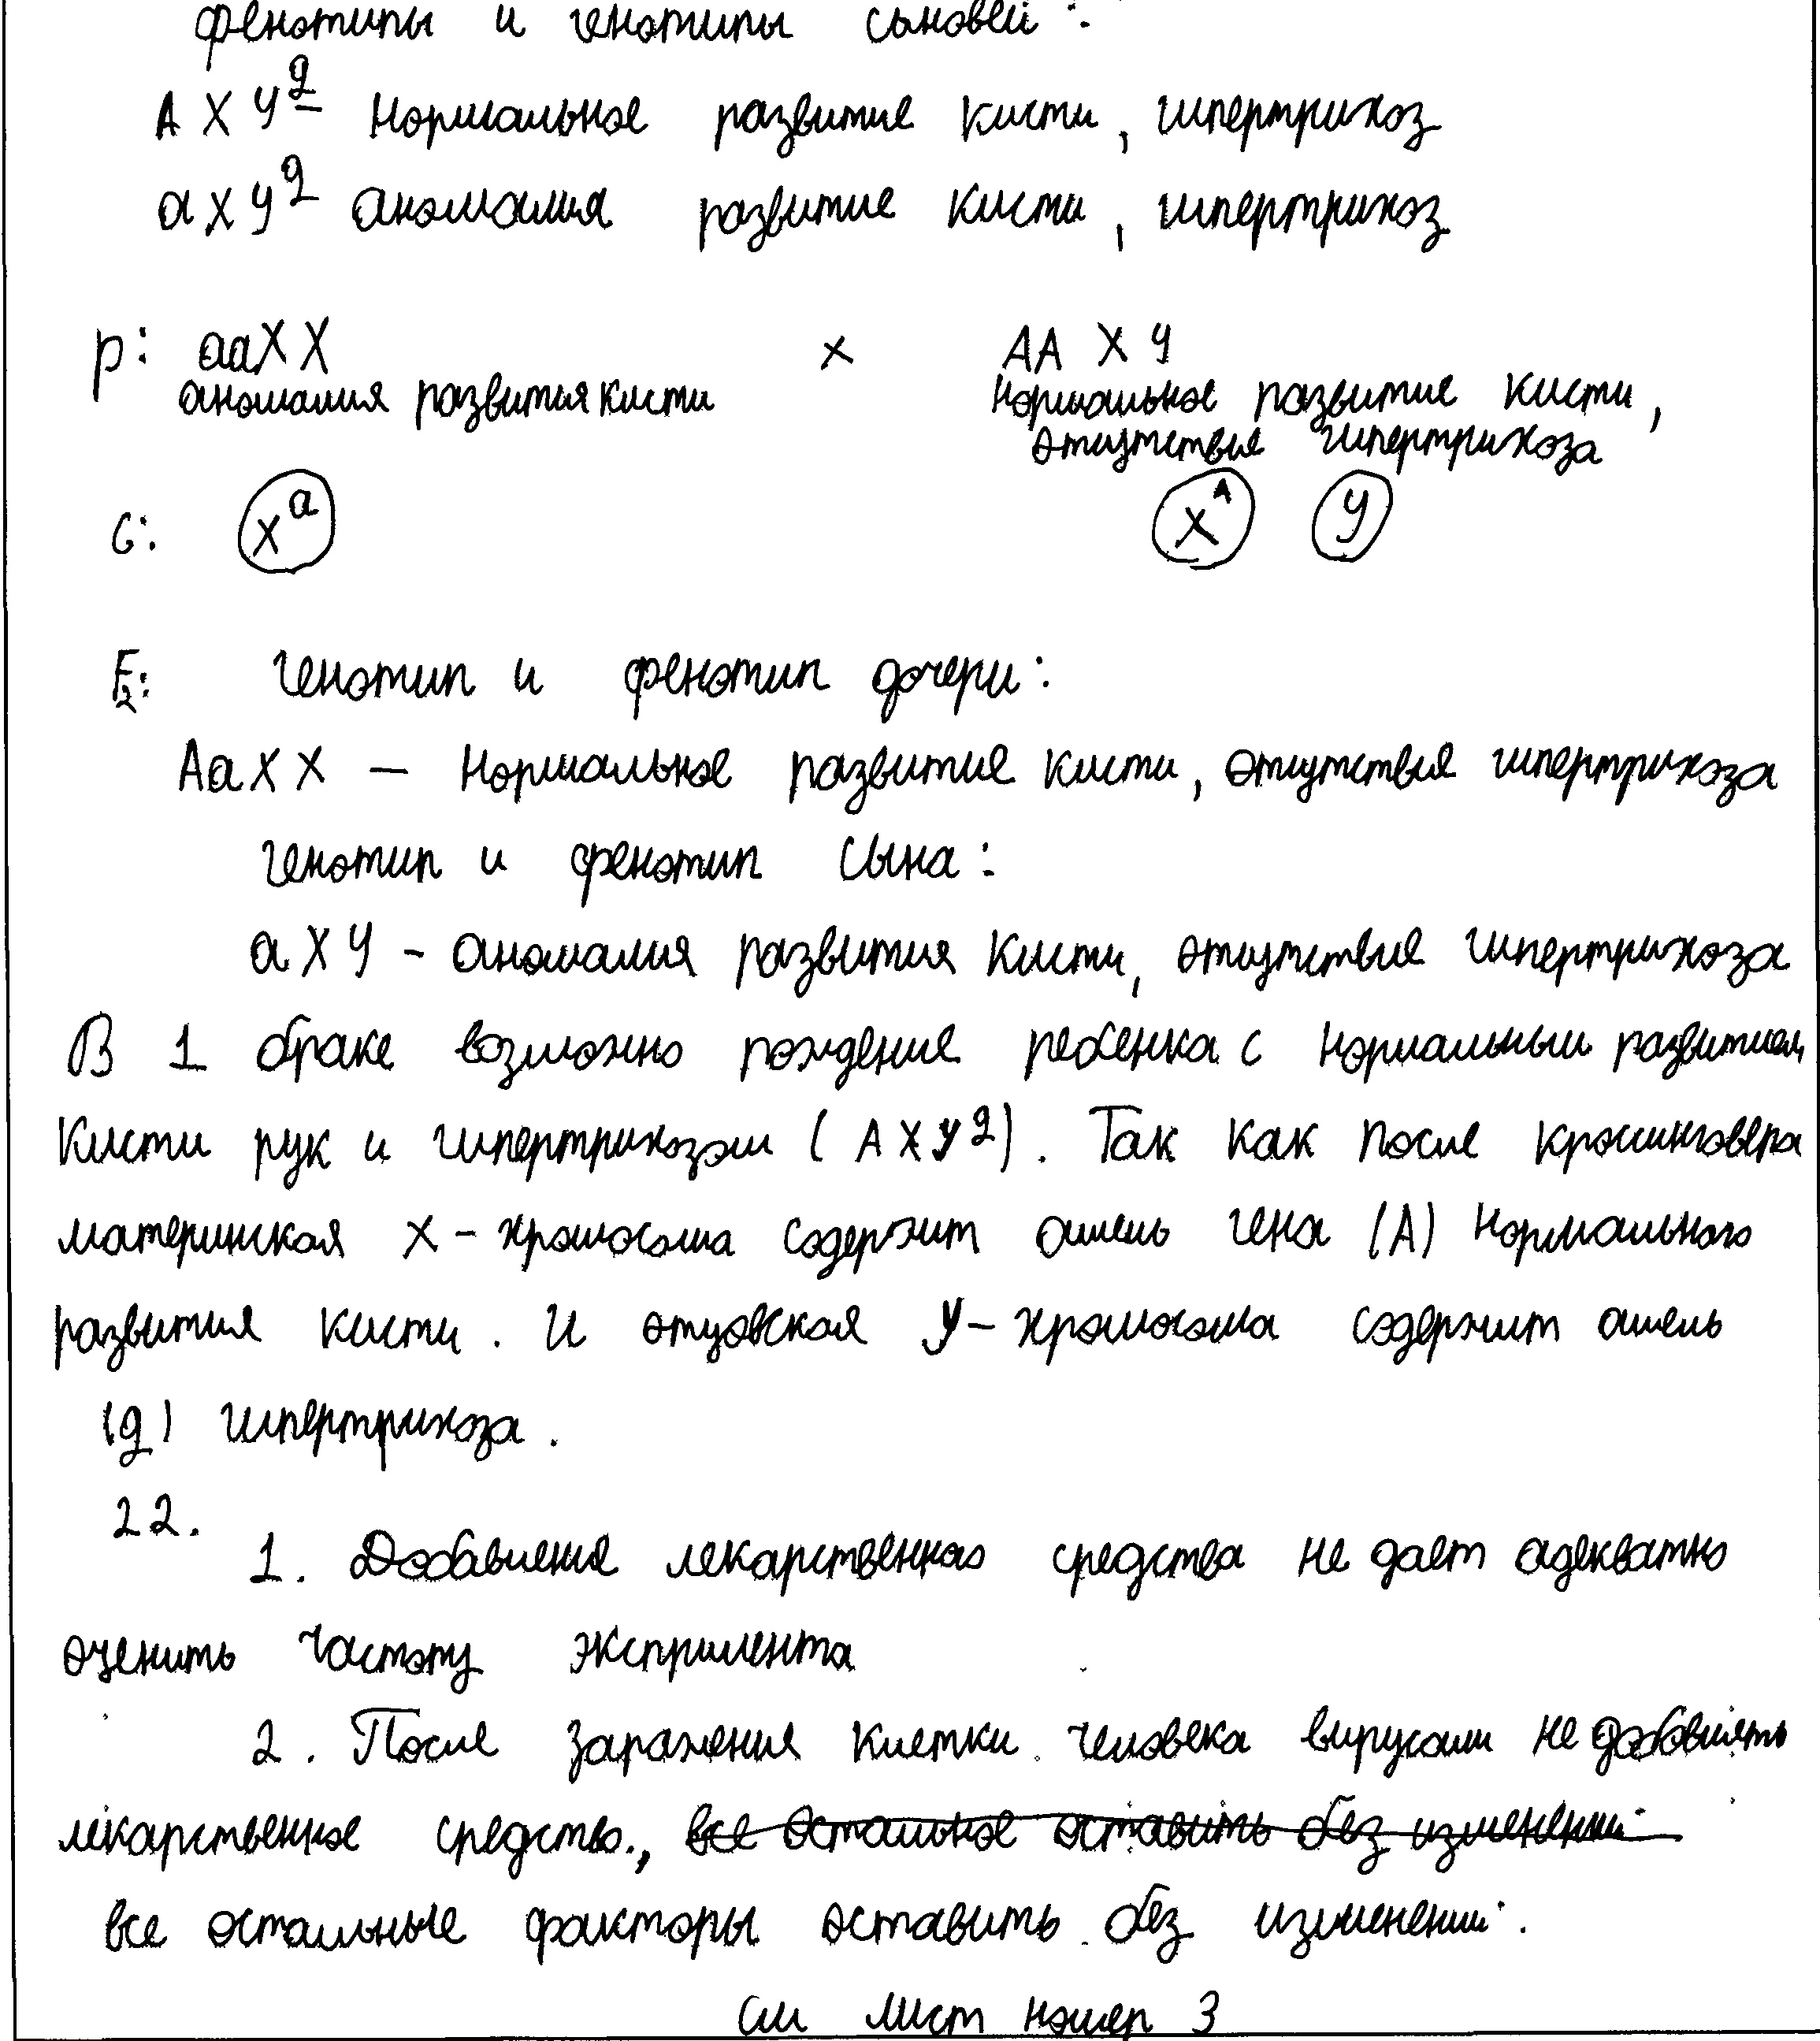 фенотипы и генотипы сыновей:
А Х У^g - нормальное развитие кисти, гипертрихоз
а х у^g аномалия развитие кисти, гипертрихоз
р: ааХХ × АА Х У
аномалия развития кисти нормальное развитие кисти,
отсутствие гипертрихоза
G: X^a X^A У
F2: генотип и фенотип дочери:
АаХХ — нормальное развитие кисти, отсутствия гипертрихоза
генотип и фенотип сына:
аХУ - аномалия развития кисти, отсутствие гипертрихоза
В 1 браке возможно рождение ребенка с нормальным развитием
кисти рук и гипертрихозом (АХУ^g). Так как после кроссинговера
материнская Х-хромосома содержит аллель гена (А) нормального
развития кисти. И отцовская У-хромосома содержит аллель
(g) гипертрихоза.
22.
1. Добавления лекарственная средства не дает адекватно
оценить частоту экспримента
2. После заражения клетки человека вирусами не добавлять
лекарственное средство., все остальное оставить без изменений
все остальные факторы оставить без изменений.
см лист номер 3